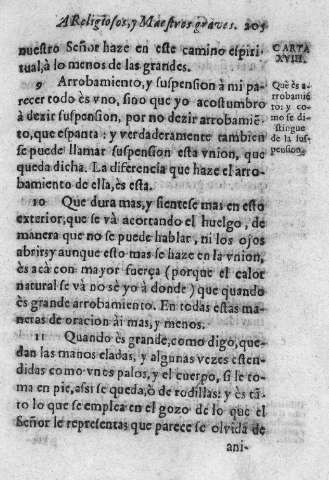 A Religiosos, y Maestros graves. 205
nuestro Señor haze en este camino espiri-
tual, à lo menos de las grandes.
9 Arrobamiento, y suspension à mi pa-
recer todo ès vno, sino que yo acostumbro
à dezir suspension, por no dezir arrobamiẽ-
to, que espanta: y verdaderamente tambien
se puede llamar suspension esta vnion, que
queda dicha. La diferencia que haze el arro-
bamiento de ella, ès esta.
10 Que dura mas, y sientese mas en esto
exterior, que se và acortando el huelgo, de
manera que no se puede hablar, ni los ojos
abrir; y aunque esto mas se haze en la vnion,
ès acà con mayor fuerça (porque el calor
natural se và no sè yo à donde) que quando
ès grande arrobamiento. En todas estas ma-
neras de oracion ài mas, y menos.
11 Quando ès grande, como digo, que-
dan las manos eladas, y algunas vezes esten-
didas como vnos palos, y el cuerpo, si le to-
ma en pie, assi se queda, ò de rodillas: y ès tã-
to lo que se emplea en el gozo de lo que el
Señor le representa, que parece se olvida de
ani-
CARTA
XVIII.
Què ès ar-
robamiẽ-
to: y co-
mo se dis-
tingue
de la sus-
pension.